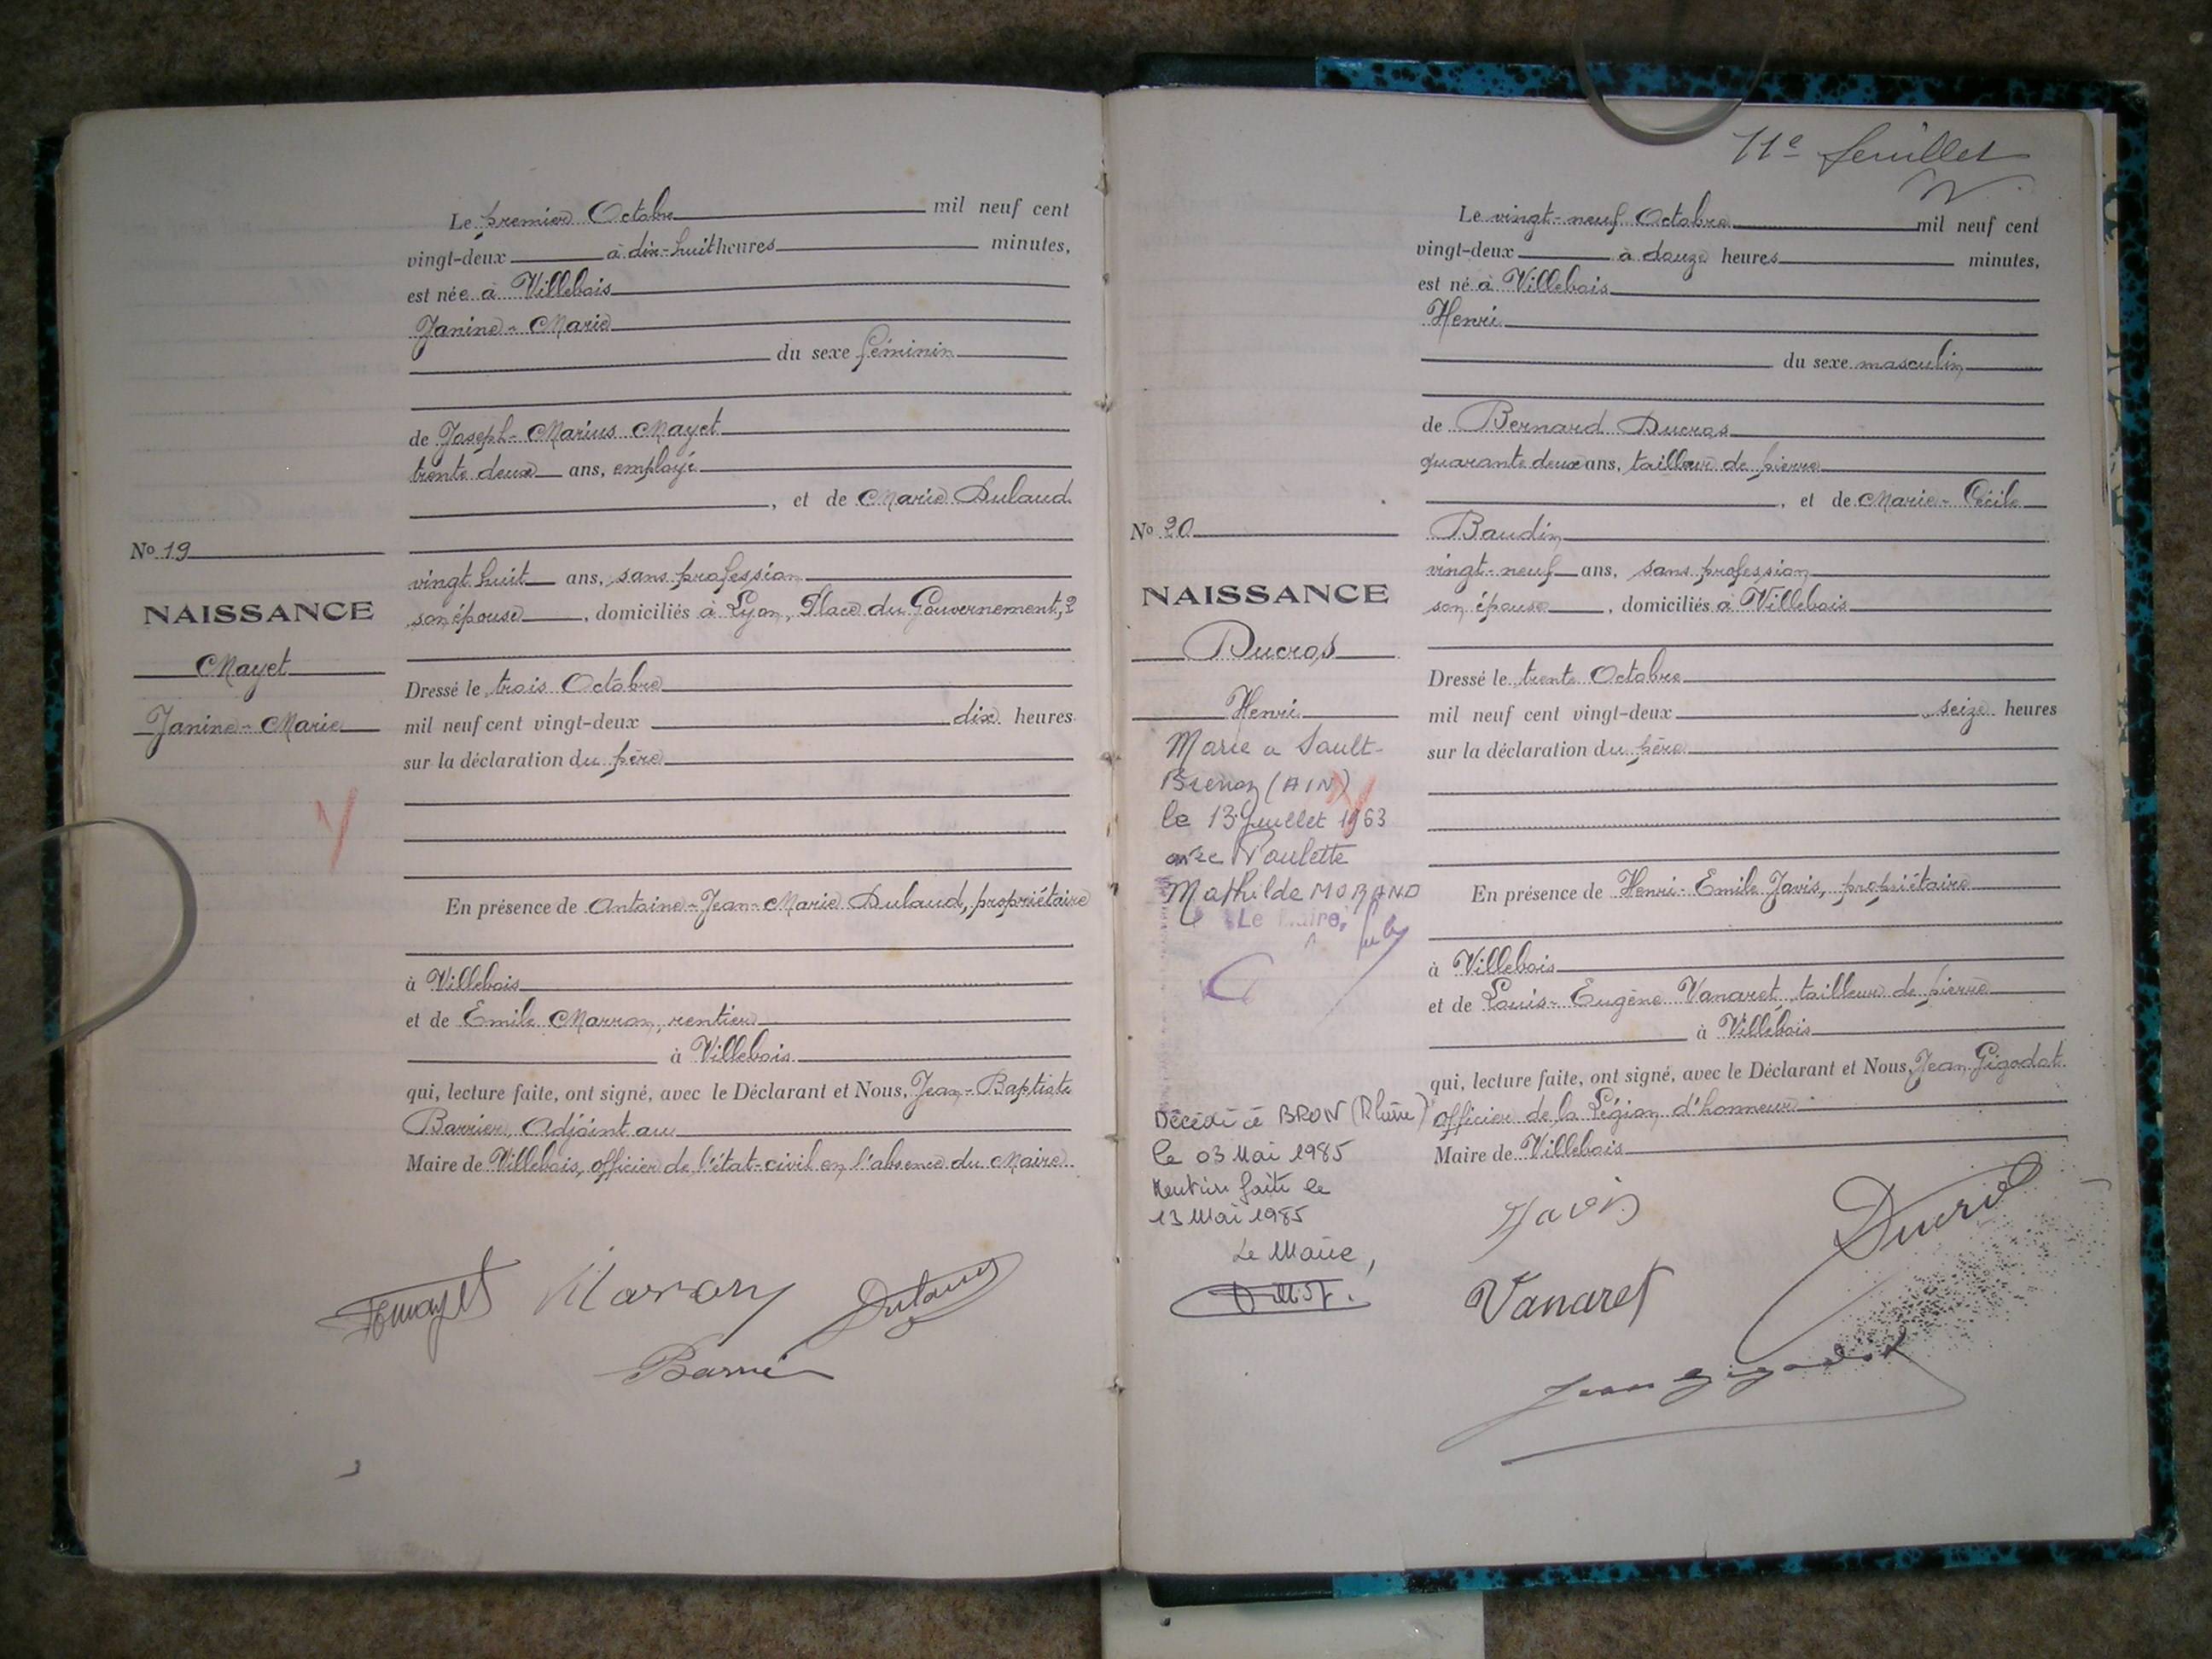 Le premier Octobre mil neuf cent
vingt-deux à dix-huit heures minutes,
est née à Villebois
Janine-Marie
du sexe féminin
de Joseph-Marius Mayet
trente deux ans, employé
, et de Marie Dulaud
No 19
vingt huit ans, sans profession
NAISSANCE
son épouse, domiciliés à Lyon, Place du Gouvernement, 2
Mayet
Dressé le trois Octobre
Janine-Marie
mil neuf cent vingt-deux dix heures
sur la déclaration du père
En présence de Antoine-Jean-Marie Dulaud, propriétaire
à Villebois
et de Emile Marron, rentier
à Villebois
qui, lecture faite, ont signé, avec le Déclarant et Nous, Jean-Baptiste
Barrier, Adjoint au
Maire de Villebois, officier de l'état-civil en l'absence du Maire
Marron
Dulaud
11e feuillet
Le vingt-neuf Octobre mil neuf cent
vingt-deux à douze heures minutes,
est né à Villebois
Henri
du sexe masculin
de Bernard Ducros
quarante deux ans, tailleur de pierre
, et de Marie-Cécile
No 20
Baudin
vingt-neuf ans, sans profession
NAISSANCE
son épouse, domiciliés à Villebois
Ducros
Dressé le trente Octobre
Henri
mil neuf cent vingt-deux seize heures
sur la déclaration du père
Marié a Sault-
Brenaz (AIN)
le 13 Juillet 1963
avec Paulette
Mathilde MORAND
Le Maire,
En présence de Henri-Emile Javis, propriétaire
à Villebois
et de Louis-Eugène Vanaret, tailleur de pierre
à Villebois
qui, lecture faite, ont signé, avec le Déclarant et Nous, Jean Gigodot
officier de la Légion d'honneur
Maire de Villebois
Décédé à BRON (Rhône)
le 03 Mai 1985
Mention faite le
13 Mai 1985
Le Maire,
Javis
Ducros
Vanaret
Jean Gigodot